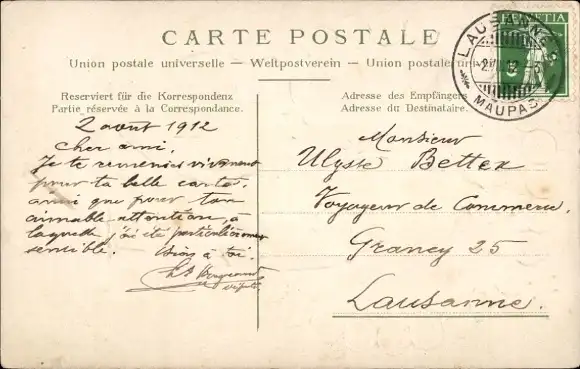 CARTE POSTALE
Union postale universelle — Weltpostverein — Union postale uni
Reserviert für die Korrespondenz
Partie réservée à la Correspondance.
Adresse des Empfängers
Adresse du Destinataire.
HELVETIA
5
LAUSANNE
2.VIII.12
MAUPAS
2 août 1912
Cher ami.
Je te remercie vivement
pour ta belle carte,
ainsi que pour ton
aimable attention, à
laquelle j'ai été particulièrement
sensible. Bien à toi.
député.
Monsieur
Ulysse Bettex
Voyageur de Commerce.
Grancy 25
Lausanne.